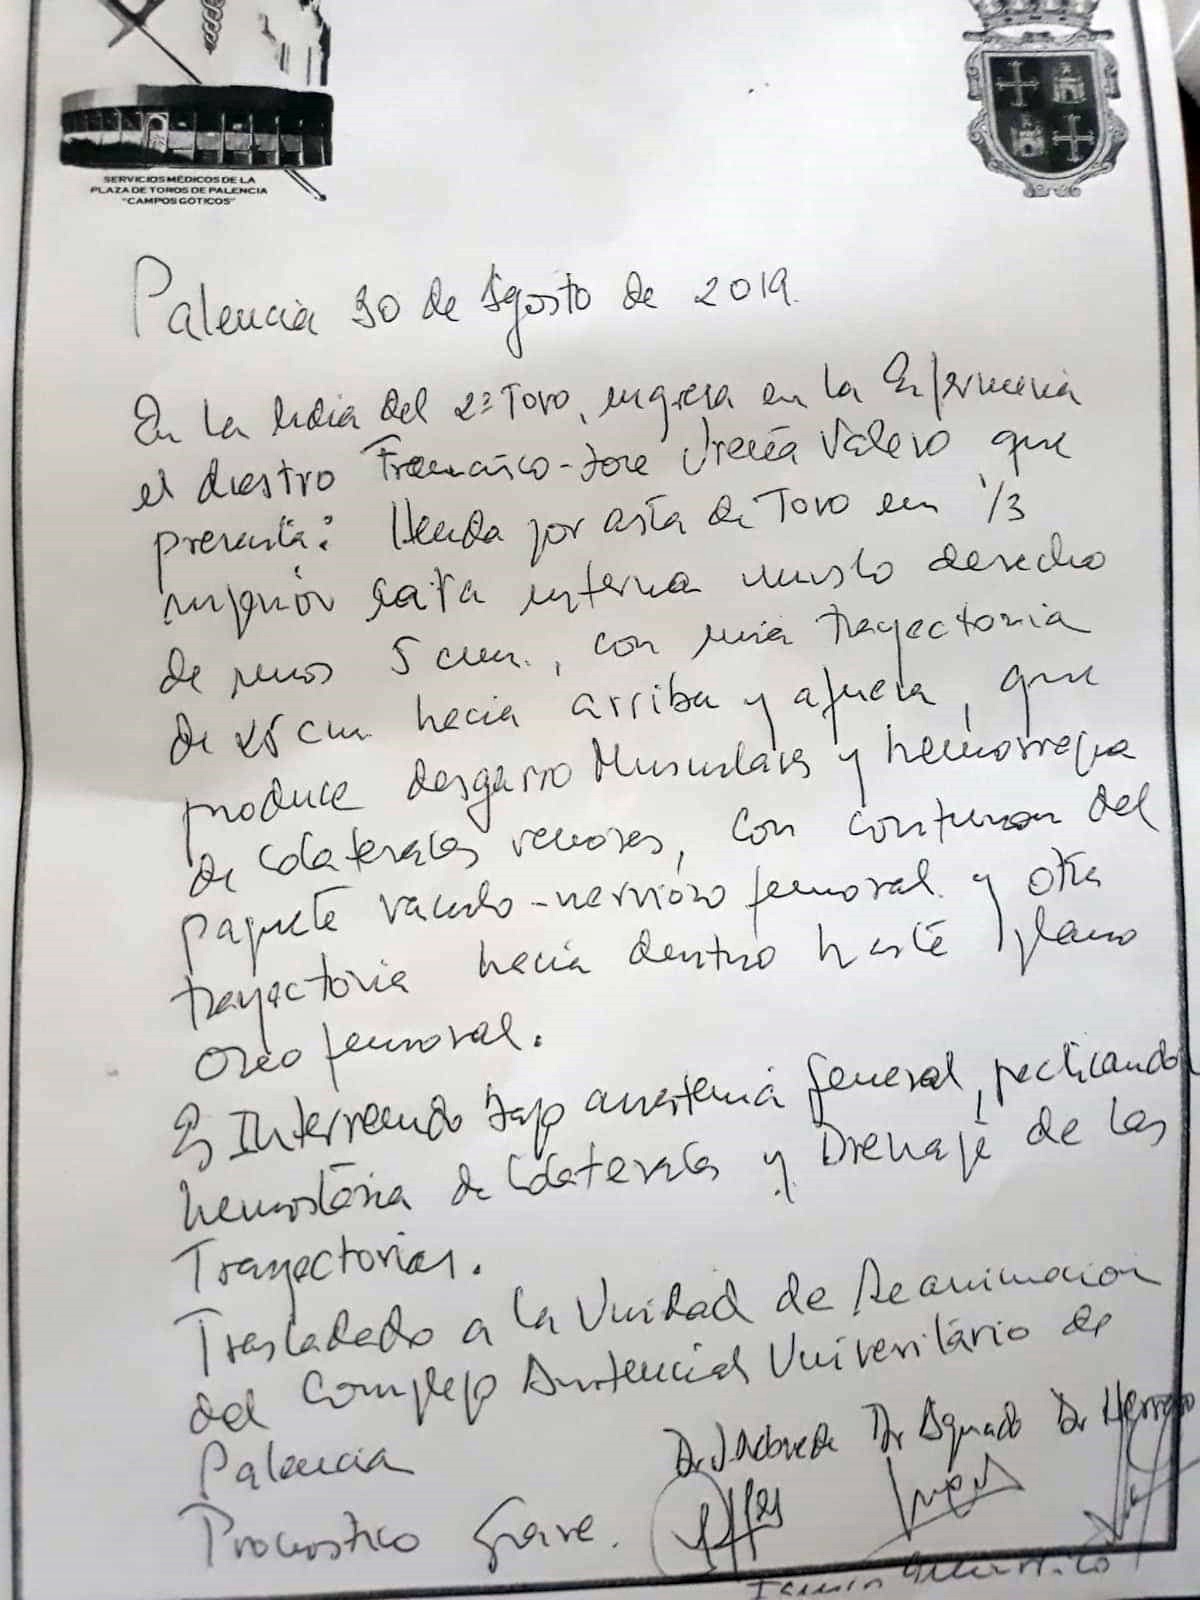 SERVICIOS MÉDICOS DE LA
PLAZA DE TOROS DE PALENCIA
"CAMPOS GÓTICOS"
Palencia 30 de Agosto de 2019.
En la lidia del 2º Toro, ingresa en la Enfermeria
el diestro Francisco-Jose Ureña Valero que
presenta: Herida por asta de Toro en 1/3
superior cara interna muslo derecho
de unos 5 cm., con una trayectoria
de 25 cm. hacia arriba y afuera, que
produce desgarro Musculares y hemorragia
de colaterales venosas, con contusion del
paquete vasculo-nervioso femoral y otra
trayectoria hacia dentro hasta plano
oseo femoral.
Es Intervenido bajo anestesia General, practicando
hemostasia de colaterales y Drenaje de las
Trayectorias.
Trasladado a la Unidad de Reanimacion
del Complejo Asistencial Universitário de
Palencia
Dr. Dr Aguado Dr Herrero
Pronostico Grave.